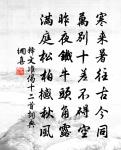 寒来暑往古今同
万别千差不得空
昨夜铁牛头角露
满庭松柏撼秋风
释文准偈十三首词典
网喜